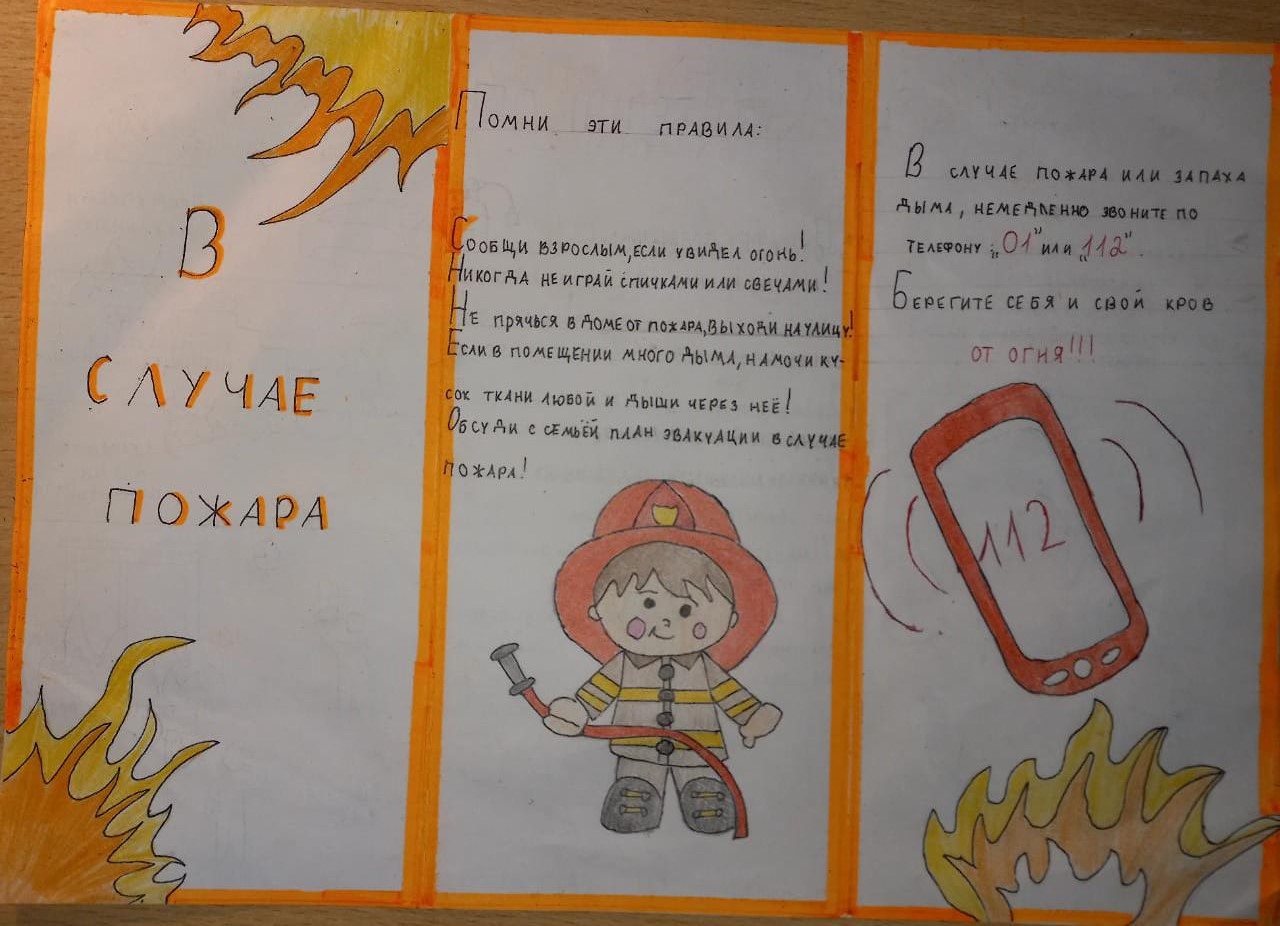 В
СЛУЧАЕ
ПОЖАРА
Помни эти правила:
Сообщи взрослым, если увидел огонь!
Никогда не играй спичками или свечами!
Не прячься в доме от пожара, выходи на улицу!
Если в помещении много дыма, намочи ку-
сок ткани любой и дыши через неё!
Обсуди с семьёй план эвакуации в случае
пожара!
В случае пожара или запаха
дыма, немедленно звоните по
телефону „01" или „112".
Берегите себя и свой кров
от огня!!!
112